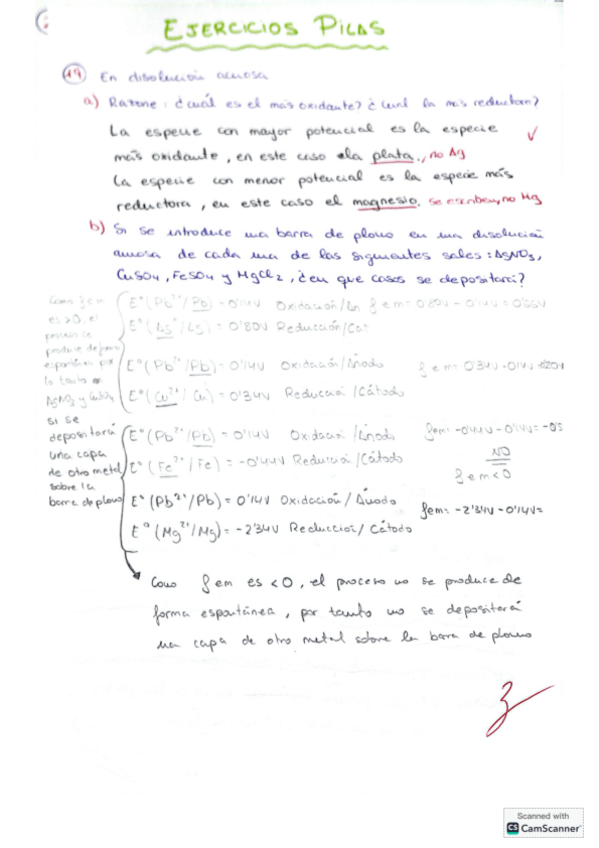 EJERCICIOS PILAS
19 En disolución acuosa
a) Razone: ¿cuál es el más oxidante? ¿Cual la más reductora?
La especie con mayor potencial es la especie
más oxidante, en este caso la plata., no Ag
La especie con menor potencial es la especie más
reductora, en este caso el magnesio. se escriben, no Mg
b) Si se introduce una barra de plomo en una disolución
acuosa de cada una de las siguientes sales: AgNO3,
CuSO4, FeSO4 y MgCl2, ¿en que casos se depositará?
Como fem
es >0, el
proceso se
produce de forma
espontánea por
lo tanto en
AgNO3 y CuSO4
si se
depositará
una capa
de otro metal
sobre la
barra de plomo
E°(Pb2+/Pb) = 0'14V Oxidación/An fem = 0'80V - 0'14V = 0'66V
E°(Ag+/Ag) = 0'80V Reducción/Cat
E°(Pb2+/Pb) = 0'14V Oxidación/Ánodo fem = 0'34V - 0'14V = 0'20V
E°(Cu2+/Cu) = 0'34V Reducción/Cátodo
E°(Pb2+/Pb) = 0'14V Oxidación/Ánodo fem = -0'44V - 0'14V = -0'5
E°(Fe2+/Fe) = -0'44V Reducción/Cátodo
NO
fem < 0
E°(Pb2+/Pb) = 0'14V Oxidación/Ánodo fem = -2'34V - 0'14V =
E°(Mg2+/Mg) = -2'34V Reducción/Cátodo
Como fem es <0, el proceso no se produce de
forma espontánea, por tanto no se depositará
una capa de otro metal sobre la barra de plomo
Scanned with
CS CamScanner